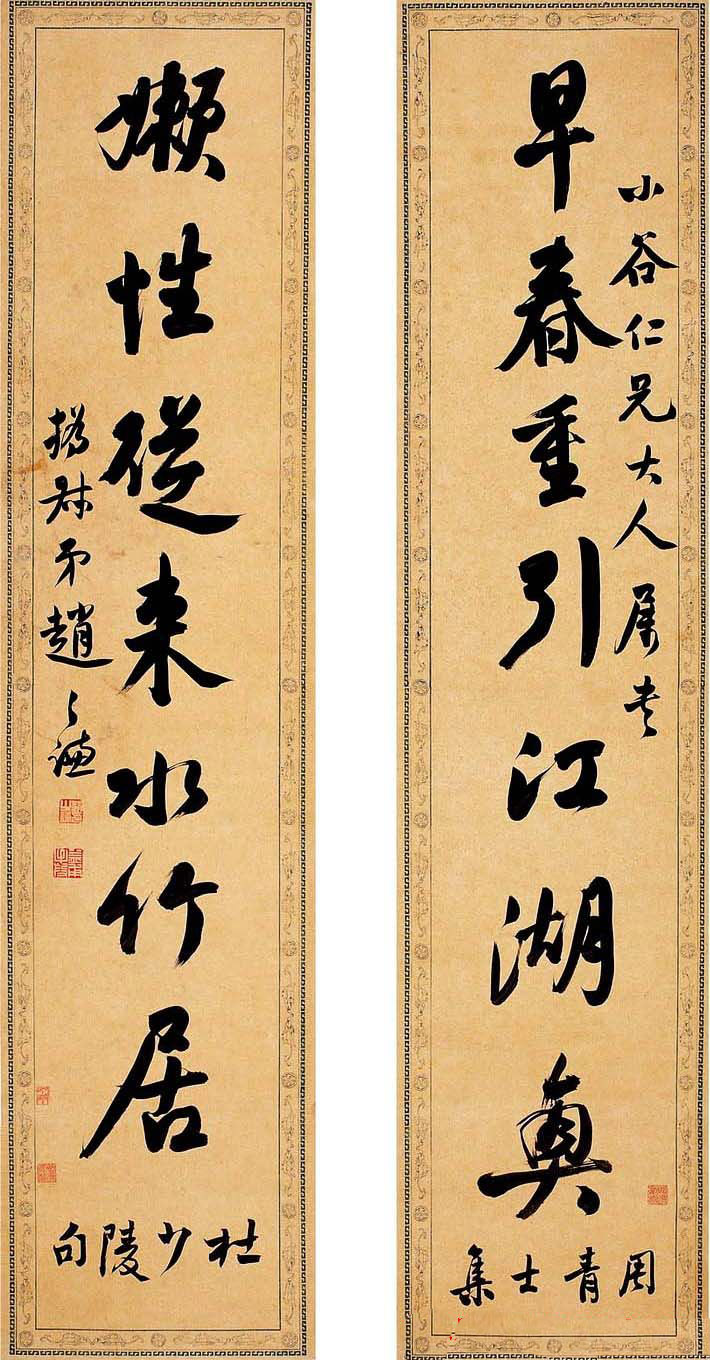 小谷仁兄大人属書
早春重引江湖興
周青士集
嬾性從来水竹居
杜少陵句
撝叔弟趙之謙